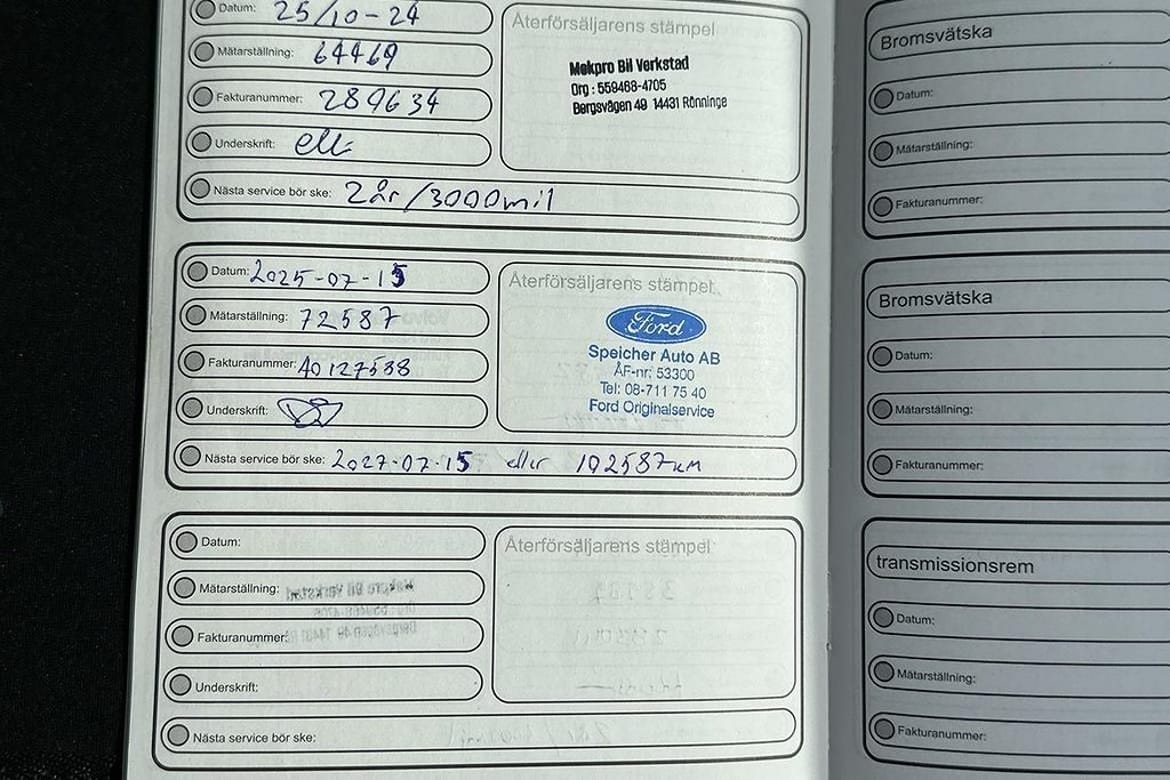 Datum: 25/10-24
Mätarställning: 64469
Fakturanummer: 289634
Underskrift:
Nästa service bör ske: 2år/3000mil
Återförsäljarens stämpel
Mekpro Bil Verkstad
Org : 559468-4705
Bergsvägen 49 14431 Rönninge
Datum: 2025-07-15
Mätarställning: 72587
Fakturanummer: 40127538
Underskrift:
Nästa service bör ske: 2027-07-15 eller 102587km
Återförsäljarens stämpel
Ford
Speicher Auto AB
ÅF-nr: 53300
Tel: 08-711 75 40
Ford Originalservice
Datum:
Mätarställning:
Fakturanummer:
Underskrift:
Nästa service bör ske:
Återförsäljarens stämpel
Bromsvätska
Datum:
Mätarställning:
Fakturanummer:
Bromsvätska
Datum:
Mätarställning:
Fakturanummer:
transmissionsrem
Datum:
Mätarställning:
Fakturanummer: